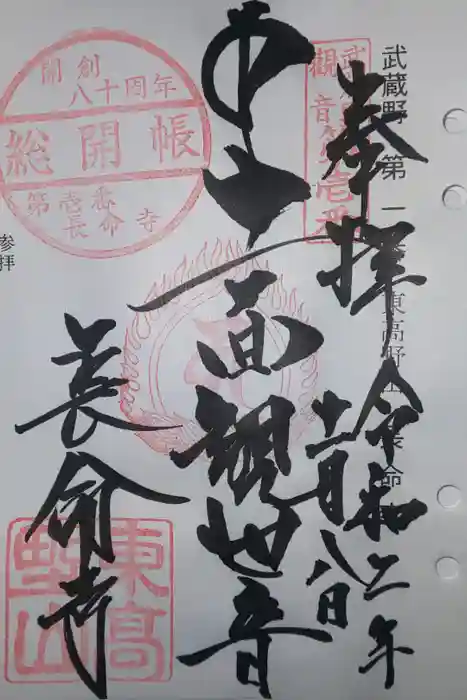 武蔵野 第一番 東高野山 長命
武蔵野
観音
第壱番
奉拝 令和二年
十一月八日
十一面観世音
長命寺
開創
八十周年
総開帳
第壱番
長命寺
参拝
東高
野山